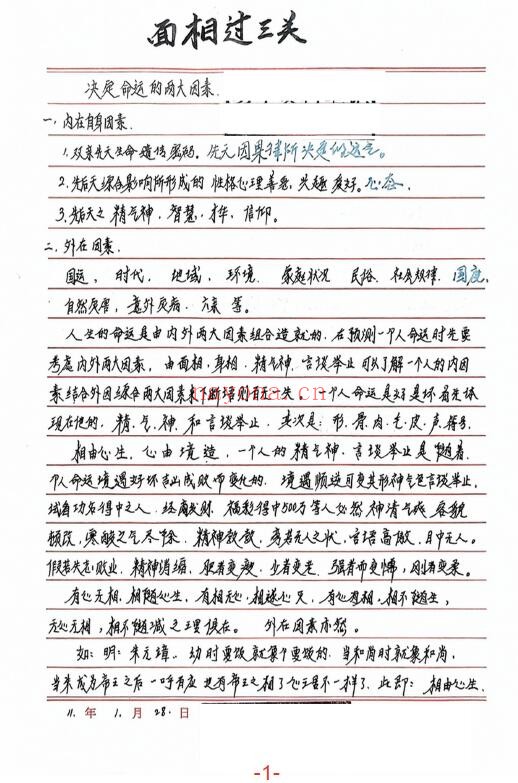 面相过三关
决定命运的两大因素.
一.内在自身因素.
1.双亲先天生命遗传密码, 先元因果律所决定的
2.先后天综合影响所形成的 性格心理善恶, 兴趣 爱好. 心态.
3.先后天之 精气神, 智慧, 才华, 信仰。
二.外在因素.
国运, 时代, 地域, 环境. 家庭状况 民俗, 社会规律, 国度,
自然灾害, 意外灾病. 等。
人生的命运是由内外两大因素组合造就的, 在预测一个人命运时先要
考虑内外两大因素, 由面相, 身相, 精气神, 言谈举止 可以了解一个人的内因
素结合外因综合两大因素 一个人命运是好是坏首先体
现在他的, 精.气.神, 和言谈举止, 其次是: 形.骨.肉.毛.皮.声.等.
相由心生, 心由境造, 一个人的精气神. 言谈举止是随着
个人命运境遇好坏吉凶成败而变化的. 境遇顺逆可更其形神气色言谈举止,
或有功名得中之人, 经商发财. 福彩得中500万等人必然神清气爽 容貌
顿改, 寒酸之气尽除. 精神 旁若无人之状, 言语高傲. 目中无人。
假若失志败业. 精神消 瘦者更瘦, 老者更老 强者而更 刚者更柔。
有心无相, 相随心生, 有相无心, 相随心灭, 有心有相, 相不随生,
无心无相, 相不随灭之理俱在。 外在因素亦然。
如: 明: 朱元璋. 幼时要饭就象个要饭的, 当和尚时就象和尚,
当朱成为帝王之后一呼百应 也有帝王之相了心理不一样了, 此即: 相由心生.
11. 年 1. 月 28. 日
-1-